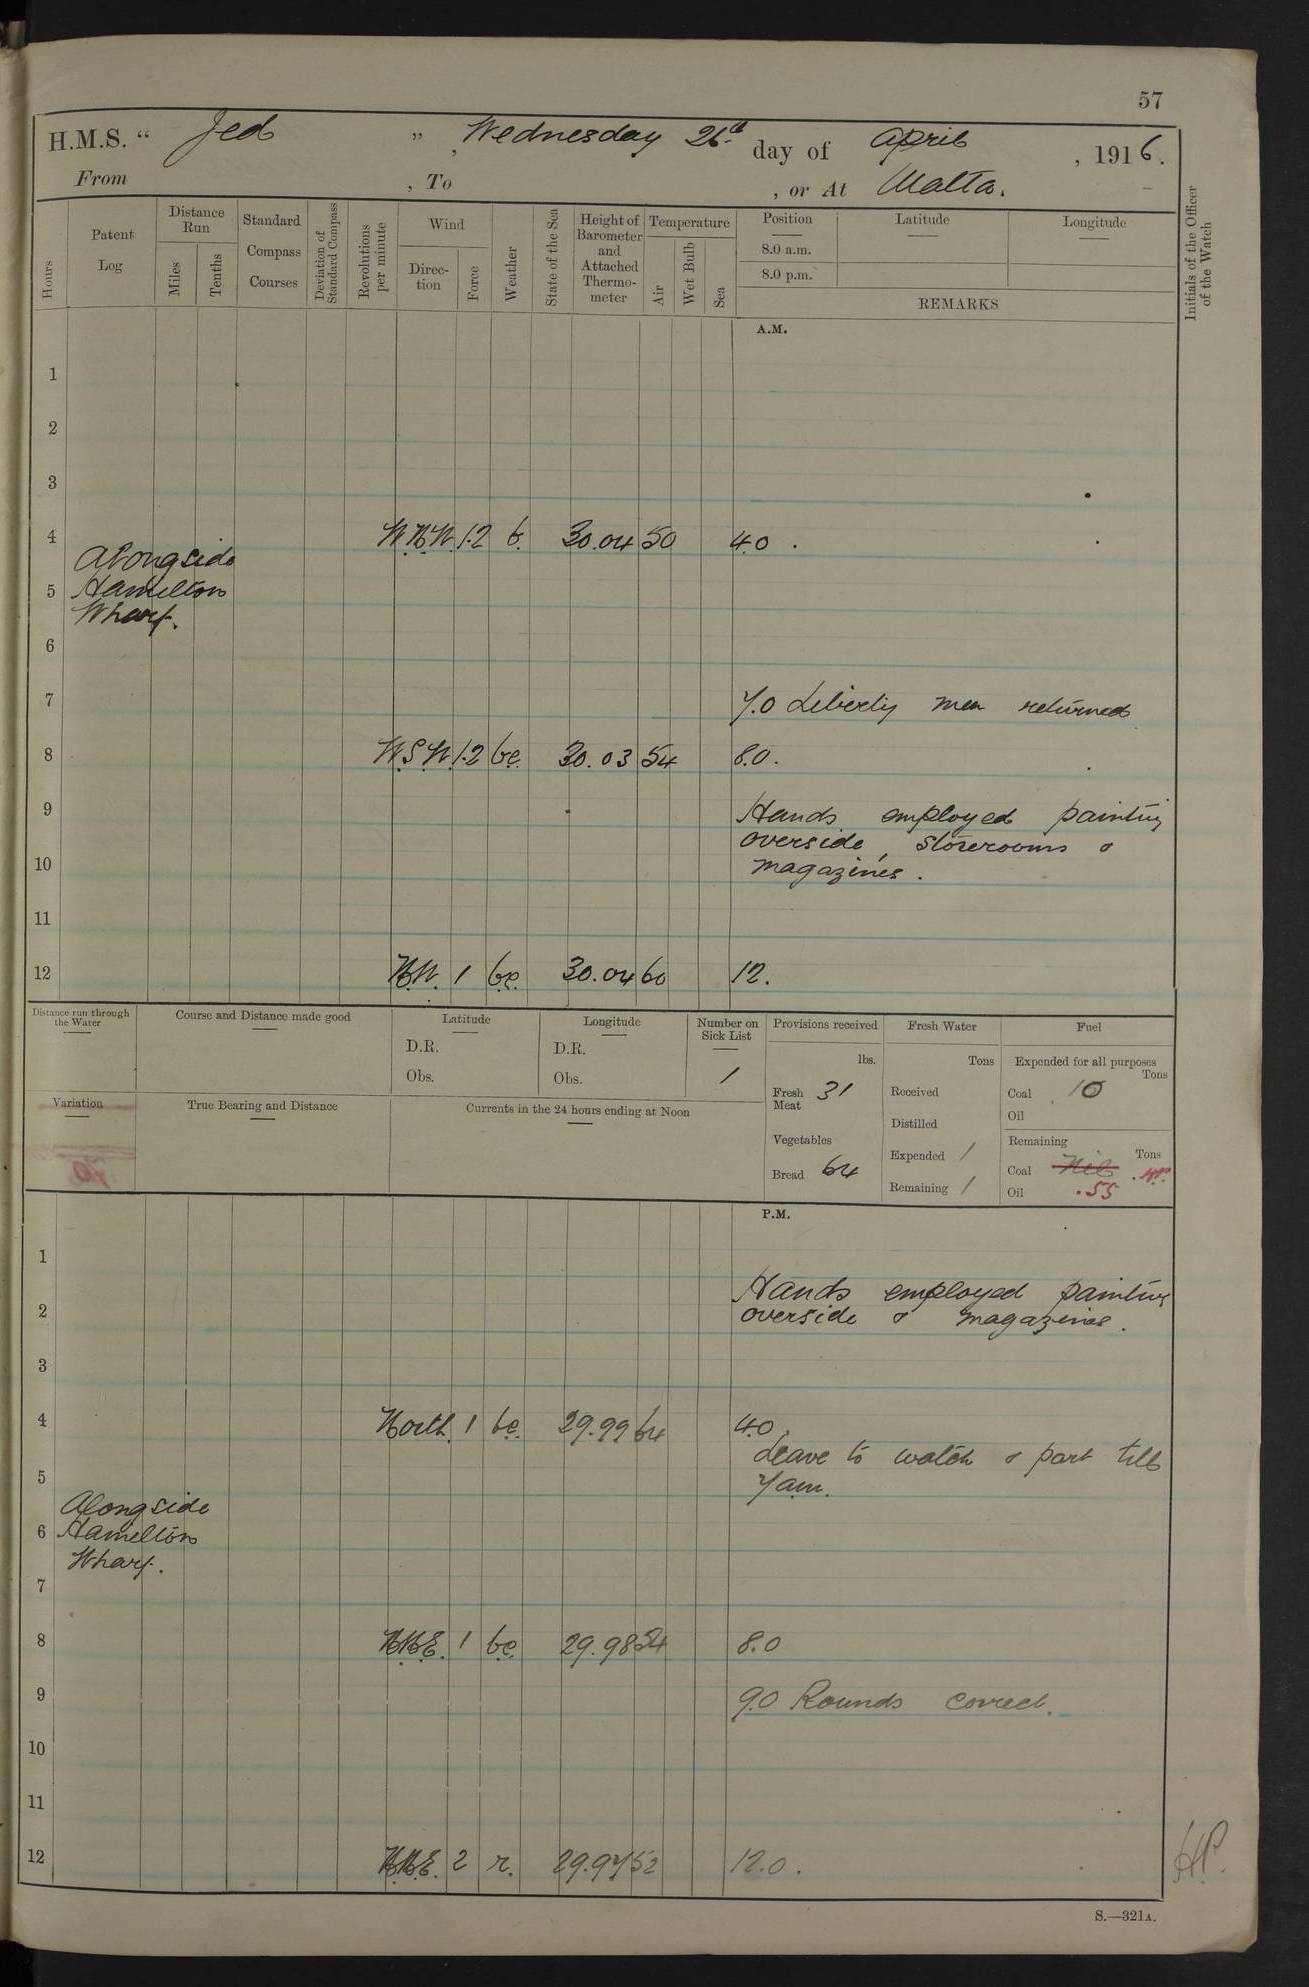 57
H.M.S. “ Jed ” , Wednesday 26th day of April , 1916.
From , To , or At Malta.
Hours
Patent Log
Distance Run
Miles
Tenths
Standard Compass Courses
Deviation of Standard Compass
Revolutions per minute
Wind
Direction
Force
Weather
State of the Sea
Height of Barometer and Attached Thermometer
Temperature
Air
Wet Bulb
Sea
Position
Latitude
Longitude
8.0 a.m.
8.0 p.m.
REMARKS
Initials of the Officer of the Watch
A.M.
1
2
3
4 W.N.W. 1.2 b. 30.04 50 4.0 .
Alongside
5 Hamilton
Wharf.
6
7 7.0 Liberty men returned
8 W.S.W. 1.2 b.c. 30.03 54 8.0.
9 Hands employed painting
overside, storerooms &
10 magazines.
11
12 N.W. 1 b.c. 30.04 60 12.
Distance run through the Water
Course and Distance made good
Latitude
D.R.
Obs.
Longitude
D.R.
Obs.
Number on Sick List
1
Provisions received
lbs.
Fresh Meat 31
Vegetables
Bread 64
Fresh Water
Tons
Received
Distilled
Expended 1
Remaining 1
Fuel
Expended for all purposes
Tons
Coal 10
Oil
Remaining
Tons
Coal Nil
Oil .55
Variation
True Bearing and Distance
Currents in the 24 hours ending at Noon
P.M.
1
Hands employed painting
2 overside & magazines.
3
4 North. 1 b.c. 29.99 64 4.0.
Leave to watch & part till
5 7am.
Alongside
6 Hamilton
Wharf.
7
8 N.N.E. 1 b.c. 29.98 54 8.0
9 9.0 Rounds correct.
10
11
12 N.N.E. 2 r. 29.97 52 12.0.
HP.
S.—321A.